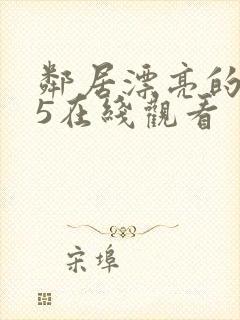 鄰居漂亮的
5在綫觀看
宋埠